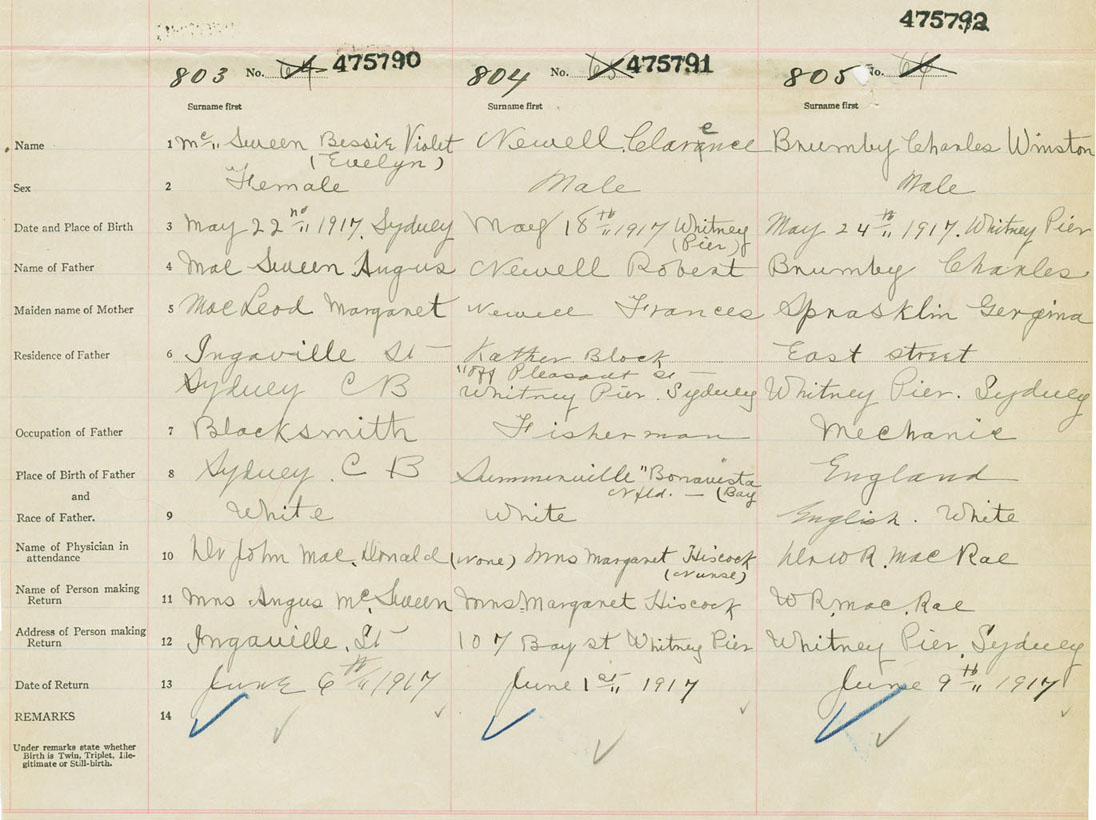 475792
803 No. 64 475790 804 No. 65 475791 805 No. 66
Surname first Surname first Surname first
Name 1 Mc Sween Bessie Violet Newell Clarence Brumby Charles Winston
(Evelyn)
Sex 2 Female Male Male
Date and Place of Birth 3 May 22nd 1917. Sydney May 18th 1917 Whitney May 24th 1917. Whitney Pier
(Pier)
Name of Father 4 Mac Sween Angus Newell Robert Brumby Charles
Maiden name of Mother 5 MacLeod Margaret Newell Frances Sprasklin Gergina
Residence of Father 6 Ingaville St Kather Block East street
"Off Pleasant St —
Sydney C B Whitney Pier. Sydney Whitney Pier. Sydney
Occupation of Father 7 Blacksmith Fisherman Mechanic
Place of Birth of Father 8 Sydney. C B Summerville "Bonavista England
and Nfld. — (Bay
Race of Father. 9 White White English. White
Name of Physician in attendance 10 Dr John Mac. Donald (None) Mrs Margaret Hiscock Dr W R. Mac Rae
(Nurse)
Name of Person making Return 11 Mrs Angus Mc Sween Mrs. Margaret Hiscock W R. Mac. Rae
Address of Person making Return 12 Ingaville. St 107 Bay st Whitney Pier Whitney Pier. Sydney
Date of Return 13 June 6th 1917 June 1st 1917 June 9th 1917
REMARKS 14
Under remarks state whether
Birth is Twin, Triplet, Ille-
gitimate or Still-birth.